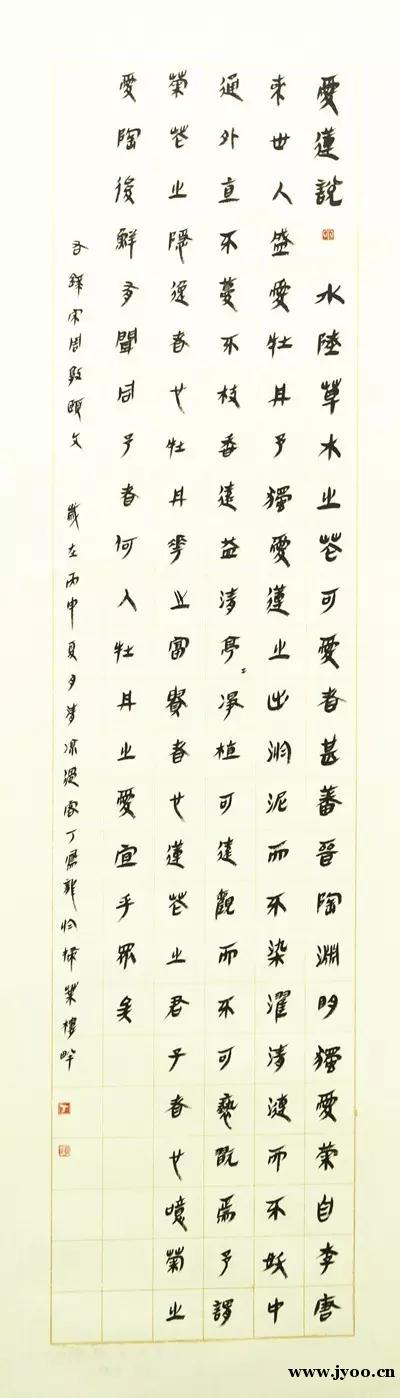 愛蓮說 水陸草木之花可愛者甚蕃晉陶淵明獨愛菊自李唐
來世人盛愛牡丹予獨愛蓮之出淤泥而不染濯清漣而不妖中
通外直不蔓不枝香遠益清亭〻淨植可遠觀而不可褻玩焉予謂
菊花之隱逸者也牡丹花之富貴者也蓮花之君子者也噫菊之
愛陶後鮮有聞同予者何人牡丹之愛宜乎眾矣
右錄宋周敦頤文 歲在丙申夏月 丁 掃葉樓畔
www.jyoo.cn